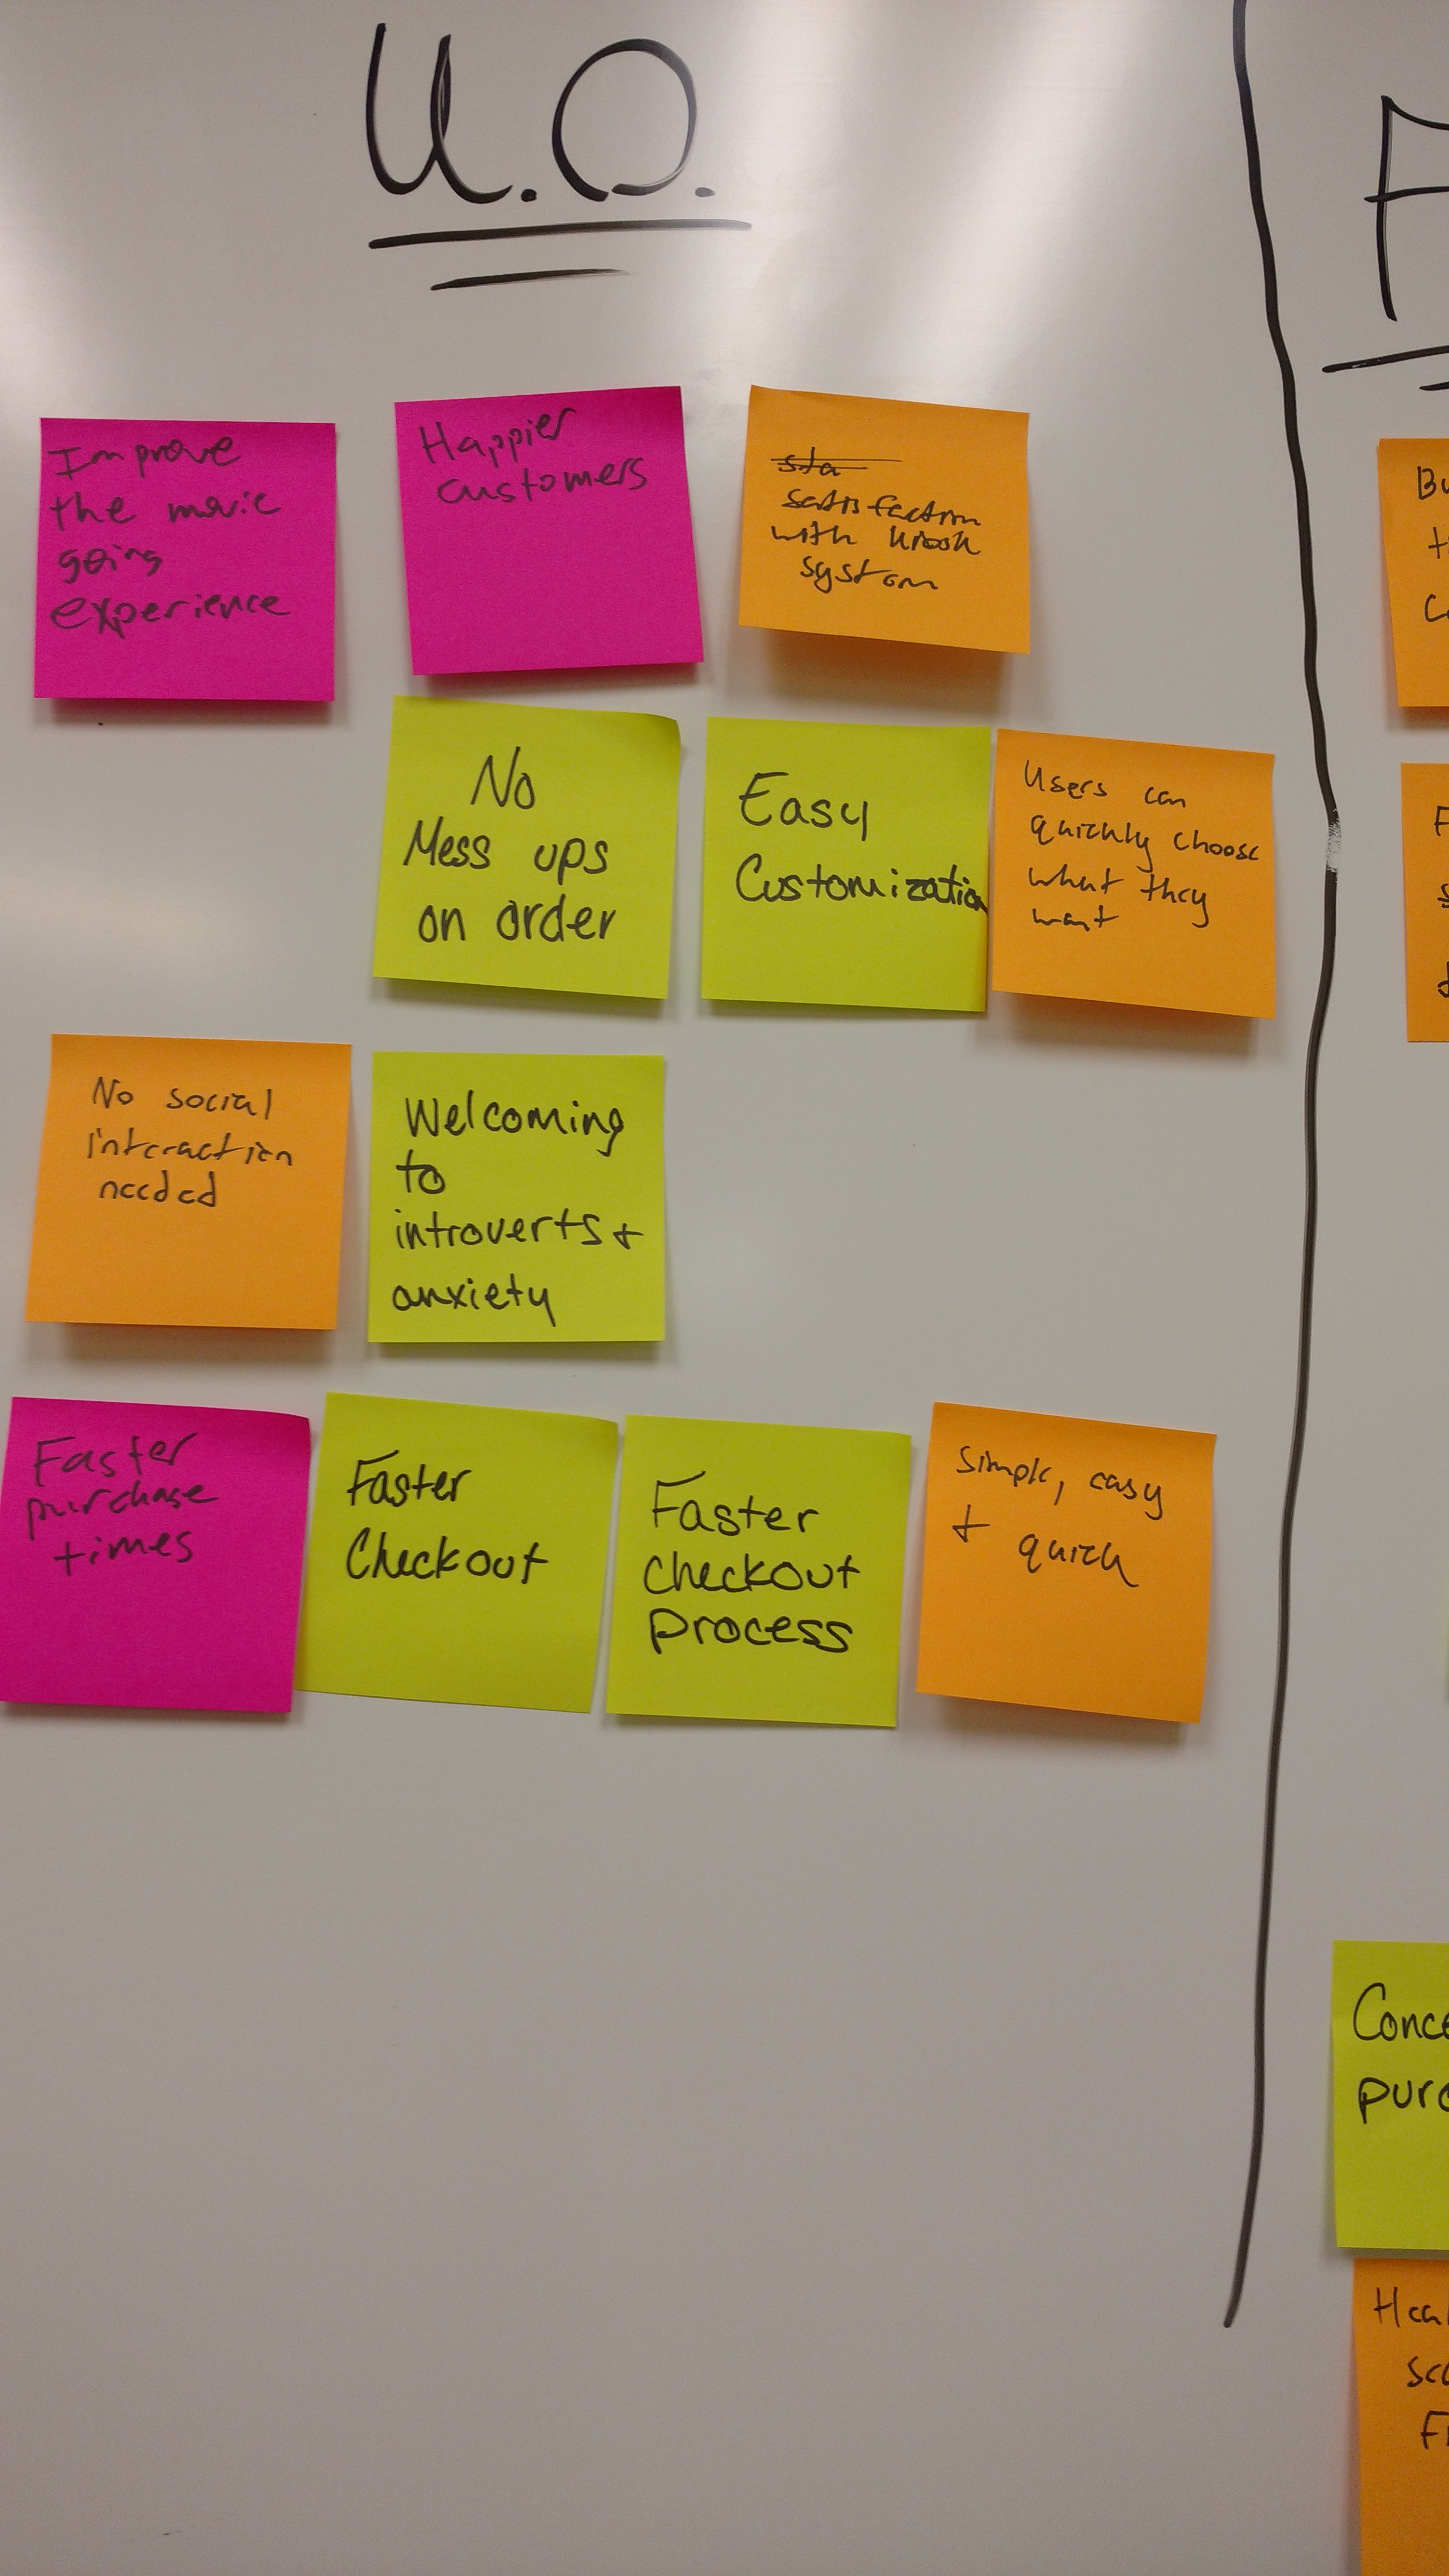 U.O.
Improve
the movie
going
experience
Happier
customers
sta
satisfaction
with kiosk
system
No
Mess ups
on order
Easy
Customization
Users can
quickly choose
what they
want
No social
interaction
needed
Welcoming
to
introverts +
anxiety
Faster
purchase
times
Faster
Checkout
Faster
checkout
process
Simple, easy
+ quick
Bu
Conce
purc
Heal